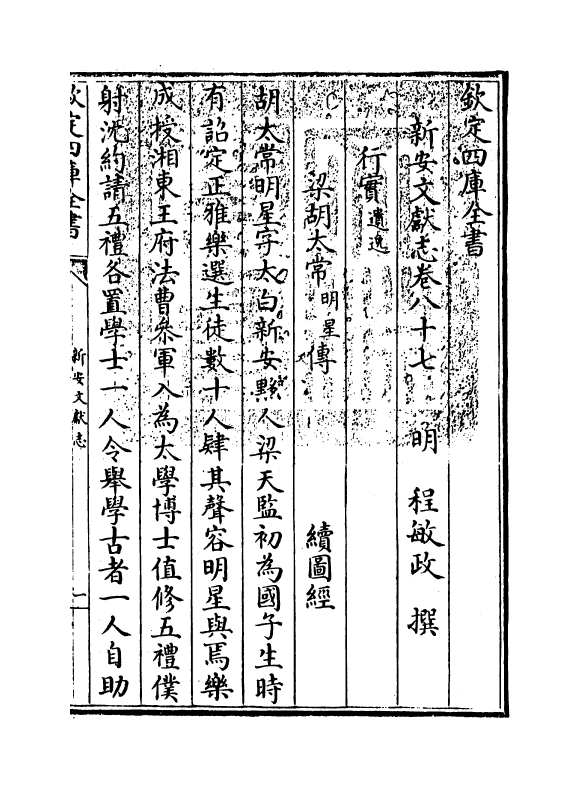 欽定四庫全書
新安文獻志卷八十七 明 程敏政 撰
行實 遺逸
梁胡太常明星傳 續圖經
胡太常明星字太白新安黟人梁天監初為國子生時
有詔定正雅樂選生徒數十人肄其聲容明星與焉樂
成授湘東王府法曹叅軍入為太學博士值修五禮僕
射沈約請五禮各置學士一人令舉學古者一人自助
欽定四庫全書
新安文獻志
一